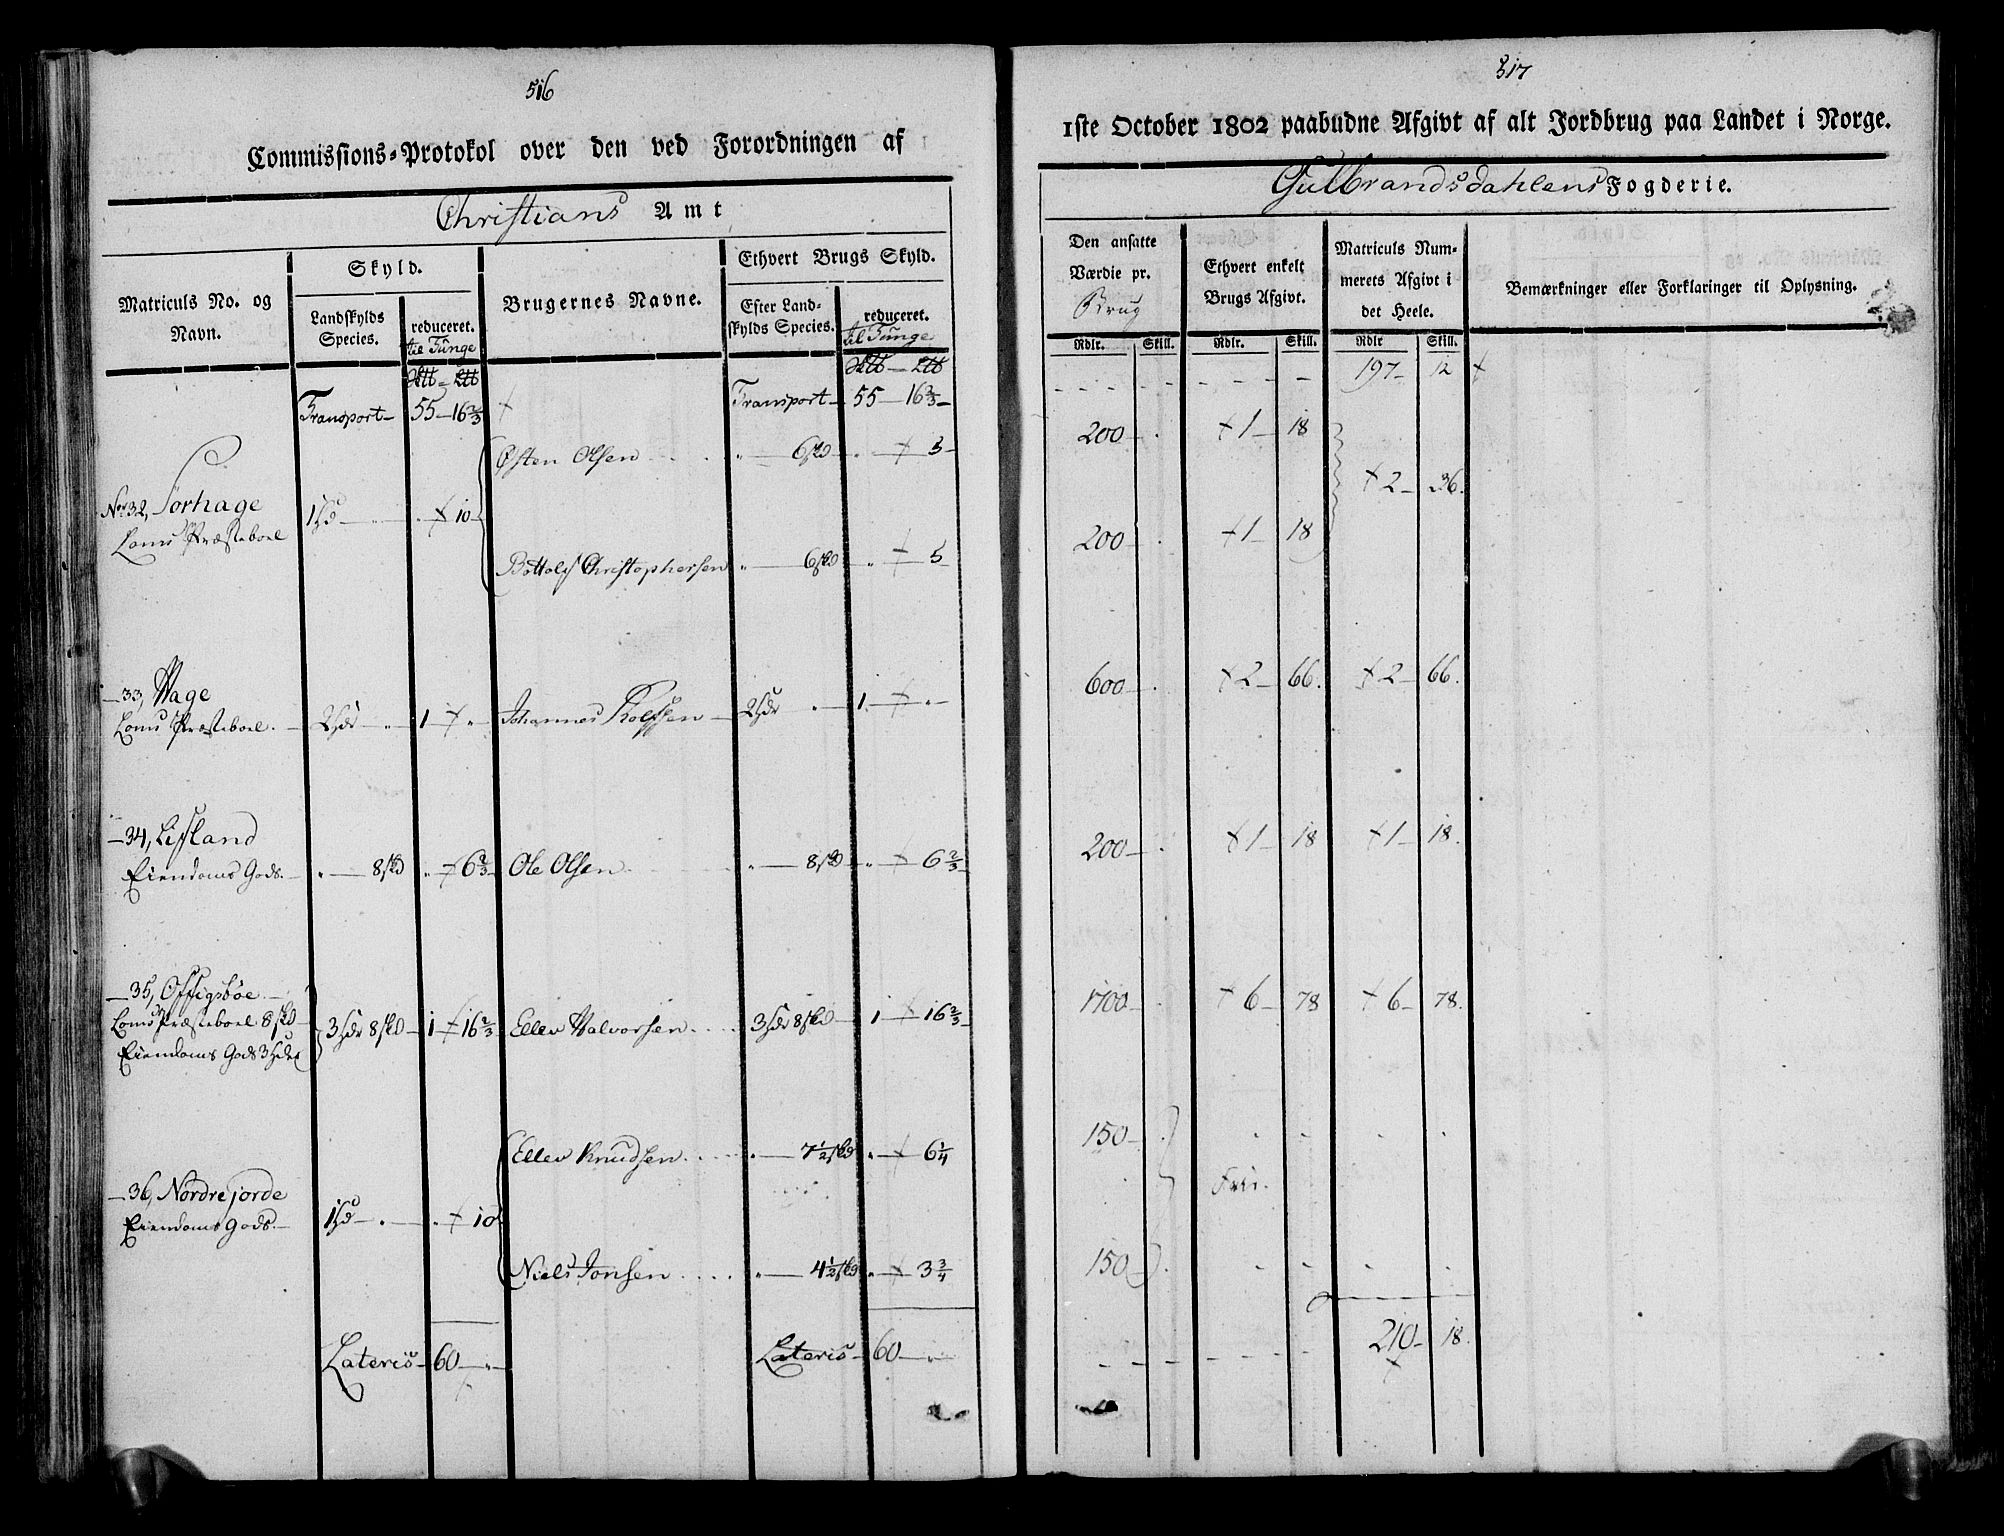 516
Commissions-Protokol over den ved Forordningen af
Christians Amt
Matriculs No. og Navn.
Skyld.
Landskylds Species.
reduceret. til Tunge
Brugernes Navne.
Ethvert Brugs Skyld.
Efter Landskylds Species.
reduceret. til Tunge
Transport — 55 — 16 2/3 Transport — 55 — 16 2/3
Østen Olsen " — 6 skd " — 5
No 32, Sorhage 1 Hd — " 10
Loms Præsteboel
Bottolf Christophersen " — 6 skd " — 5
— 33, Hage
Loms Præsteboel. — 2 Hdr " 1 — " Johannes Rolfsen — 2 Hdr " 1 — "
— 34, Lissland
Eiendoms Gods. — " — 8 skd " 6 2/3 Ole Olsen " — 8 skd " 6 2/3
— 35, Offigsbøe
Loms Præsteboel 8 skd 3 Hdr 8 skd — 1 — 16 2/3 Ellev Halvorsen 3 Hdr 8 skd — 1 — 16 2/3
Eiendoms Gods 3 Hdr
Ellev Knudsen " — 7 1/2 skd " — 6 1/4
— 36, Nordre Jorde
Eiendoms Gods. — 1 Hd — " " 10
Niels Jonsen " — 4 1/2 skd " — 3 3/4
Lateris — 60 — " Lateris — 60 — "
317
1ste October 1802 paabudne Afgivt af alt Jordbrug paa Landet i Norge.
Gulbrandsdahlens Fogderie.
Den ansatte Værdie pr. Brug
Ethvert enkelt Brugs Afgivt.
Matriculs Nummerets Afgivt i det Heele.
Bemærkninger eller Forklaringer til Oplysning.
Rdlr. Skill. Rdlr. Skill. Rdlr Skill.
197 — 12
200 — 1 — 18
2 — 36.
200 — 1 — 18
600 — 2 — 66. 2 — 66.
200 — 1 — 18 1 — 18.
1700 — 6 — 78 6 — 78.
150 —
Frie.
150
210 — 18.